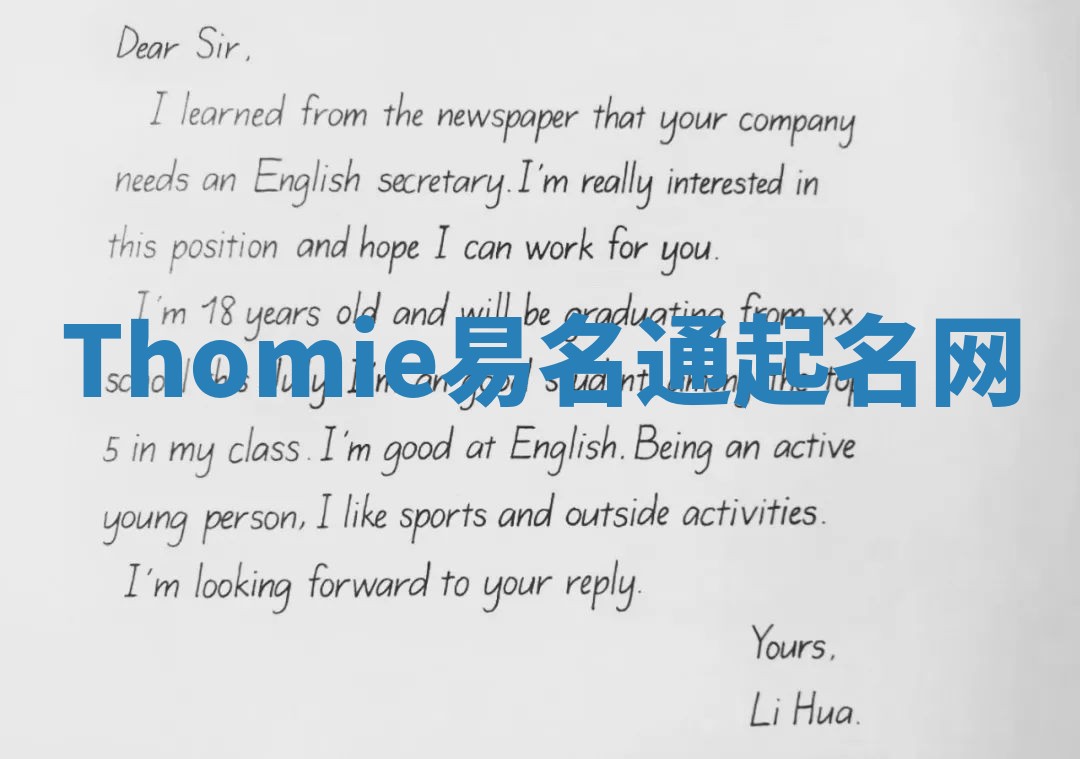 Dear Sir,
I learned from the newspaper that your company
needs an English secretary. I'm really interested in
this position and hope I can work for you.
I'm 18 years old and will be graduating from xx
Thomie易名通起名网
school this July. I'm an good student among the top
5 in my class. I'm good at English. Being an active
young person, I like sports and outside activities.
I'm looking forward to your reply.
Yours,
Li Hua.